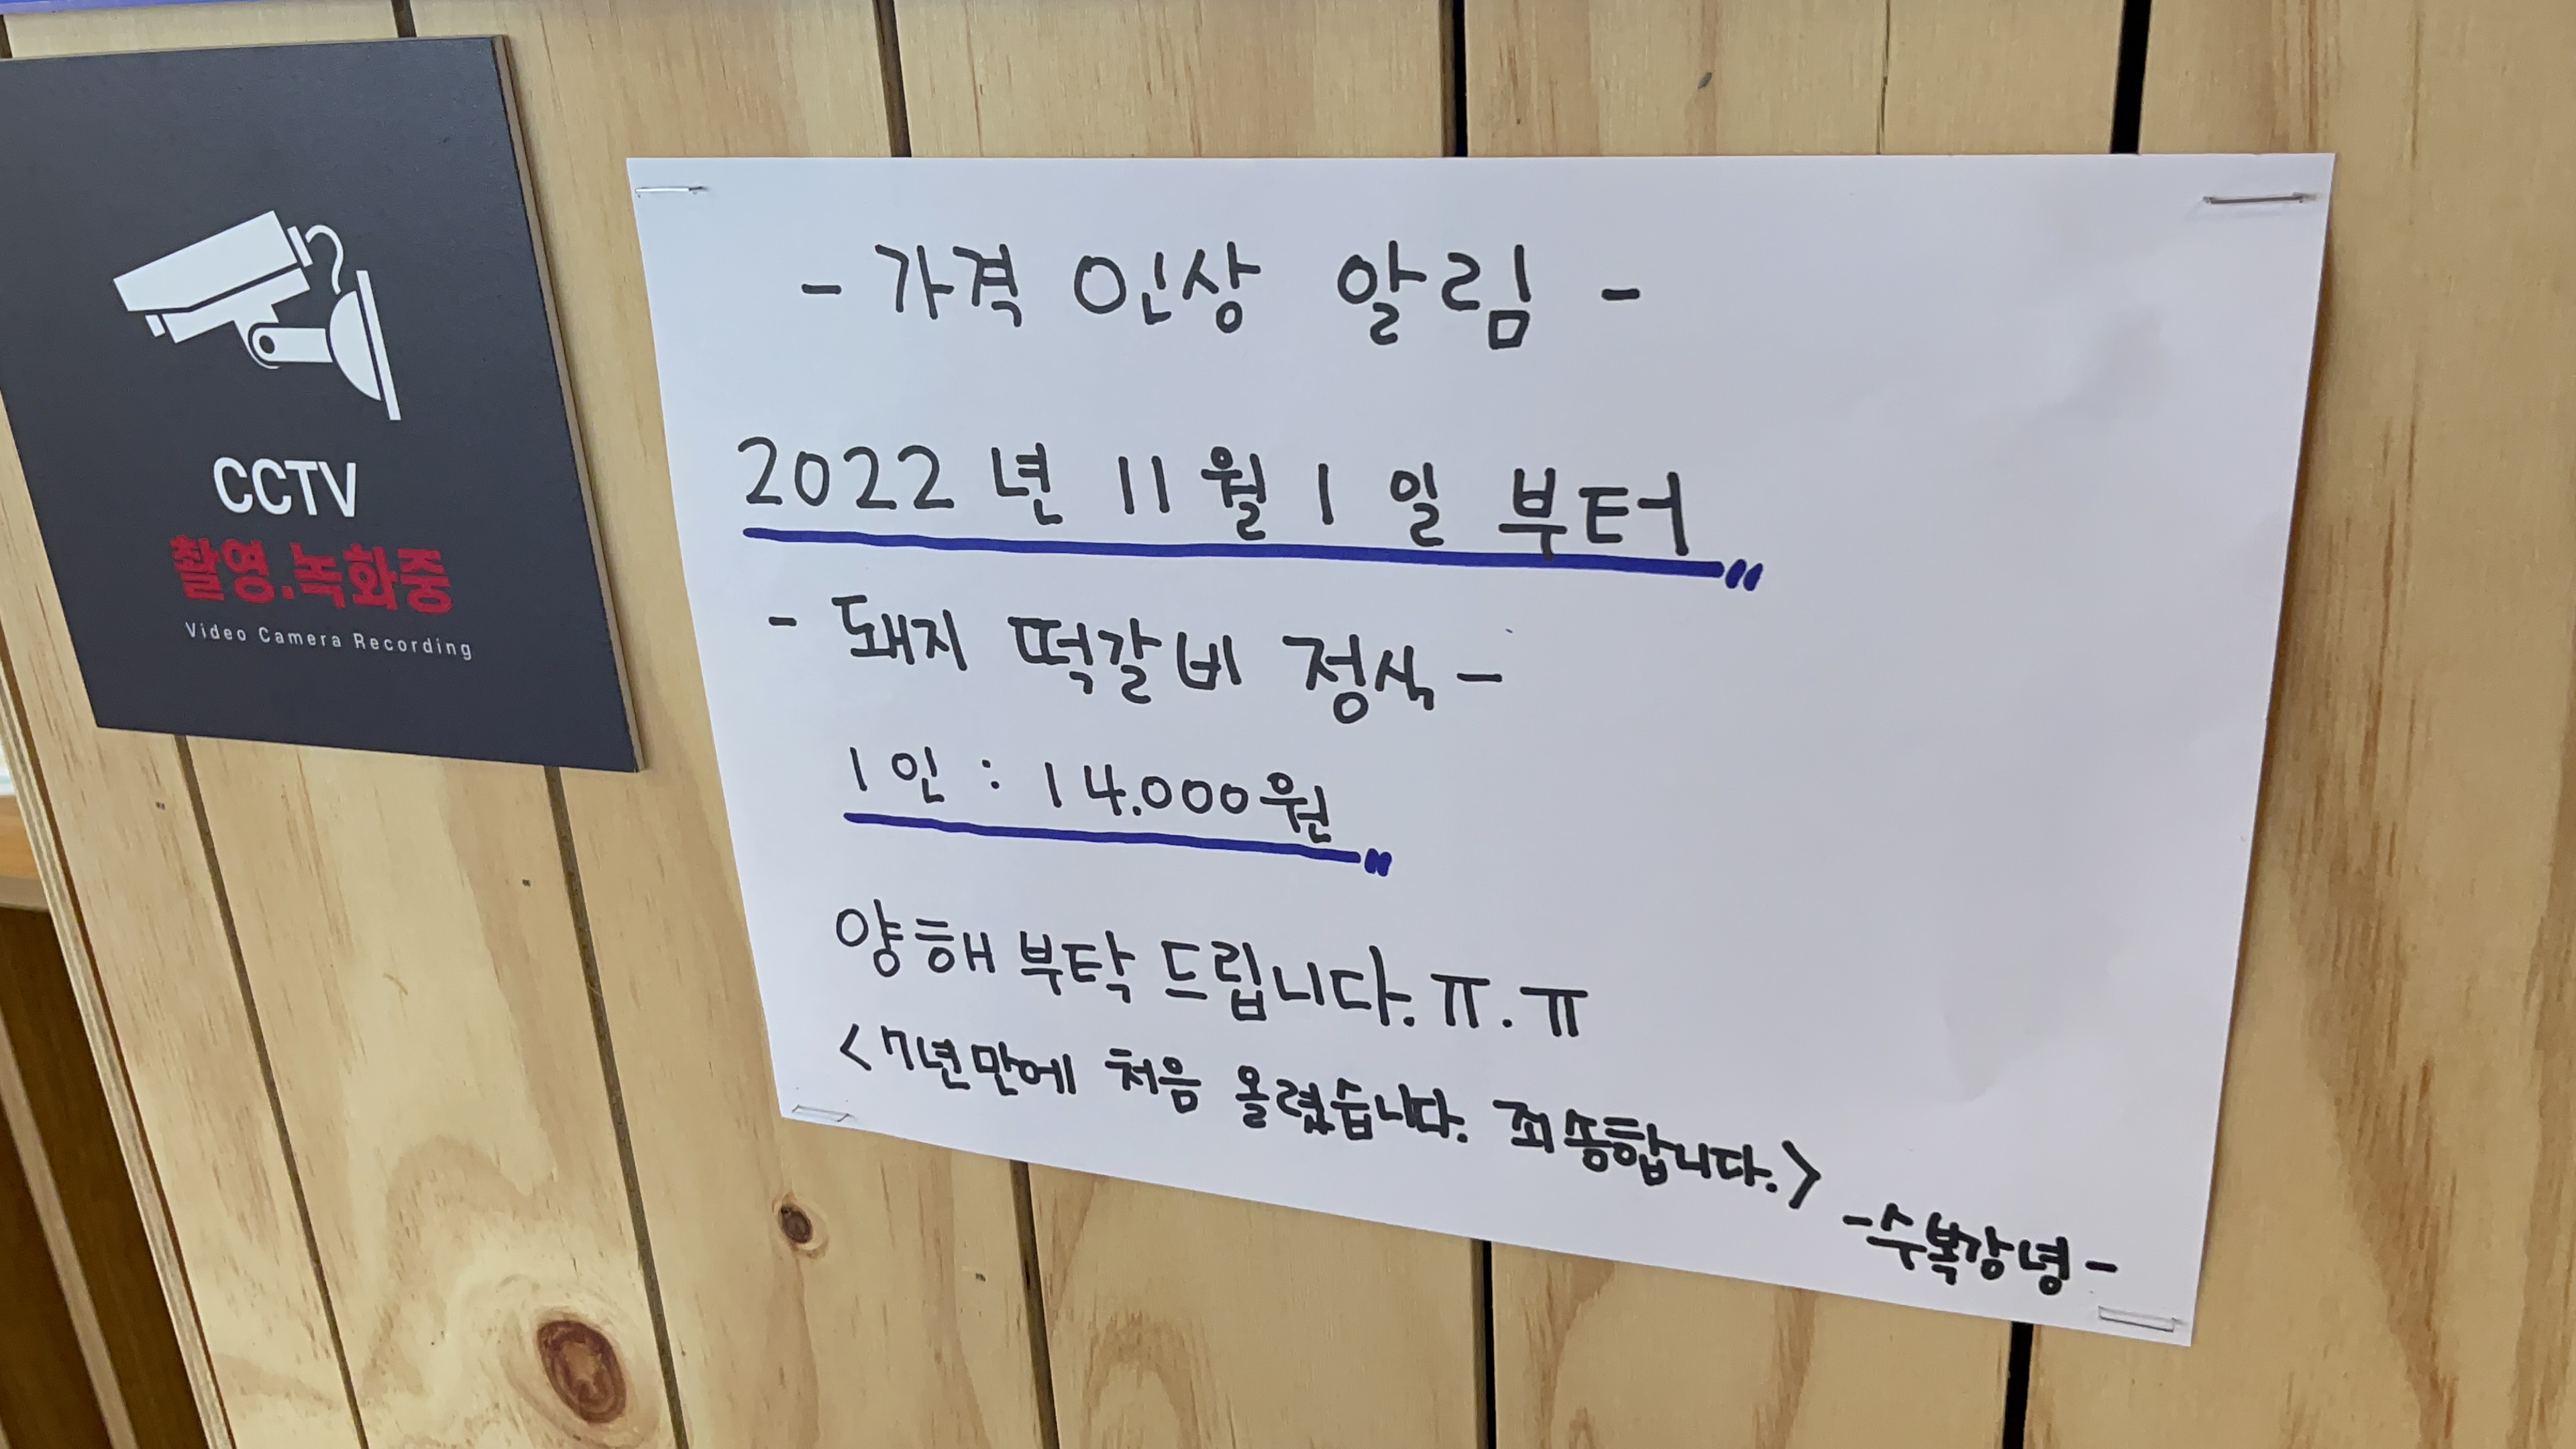 CCTV
촬영.녹화중
Video Camera Recording
- 가격 인상 알림 -
2022년 11월 1일 부터
- 돼지 떡갈비 정식 -
1인 : 14.000원
양해 부탁 드립니다.ㅠ.ㅠ
<7년만에 처음 올렸습니다. 죄송합니다.>
-수복강녕-